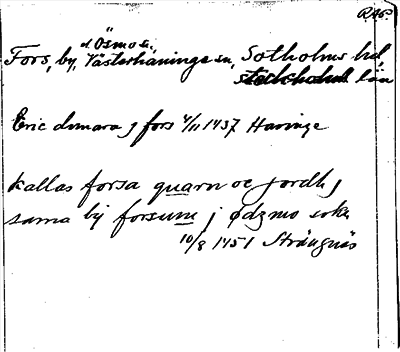 RAP.
d. Ösmo s.
Fors, by, Västerhaninge sn, Sotholms hd,
Stockholms län
Eric dmara j fors 4/11 1437 Haninge
kallas forsa quarn oc jordh j
sama by forsum j ødzmo sokn
10/8 1451 Strängnäs